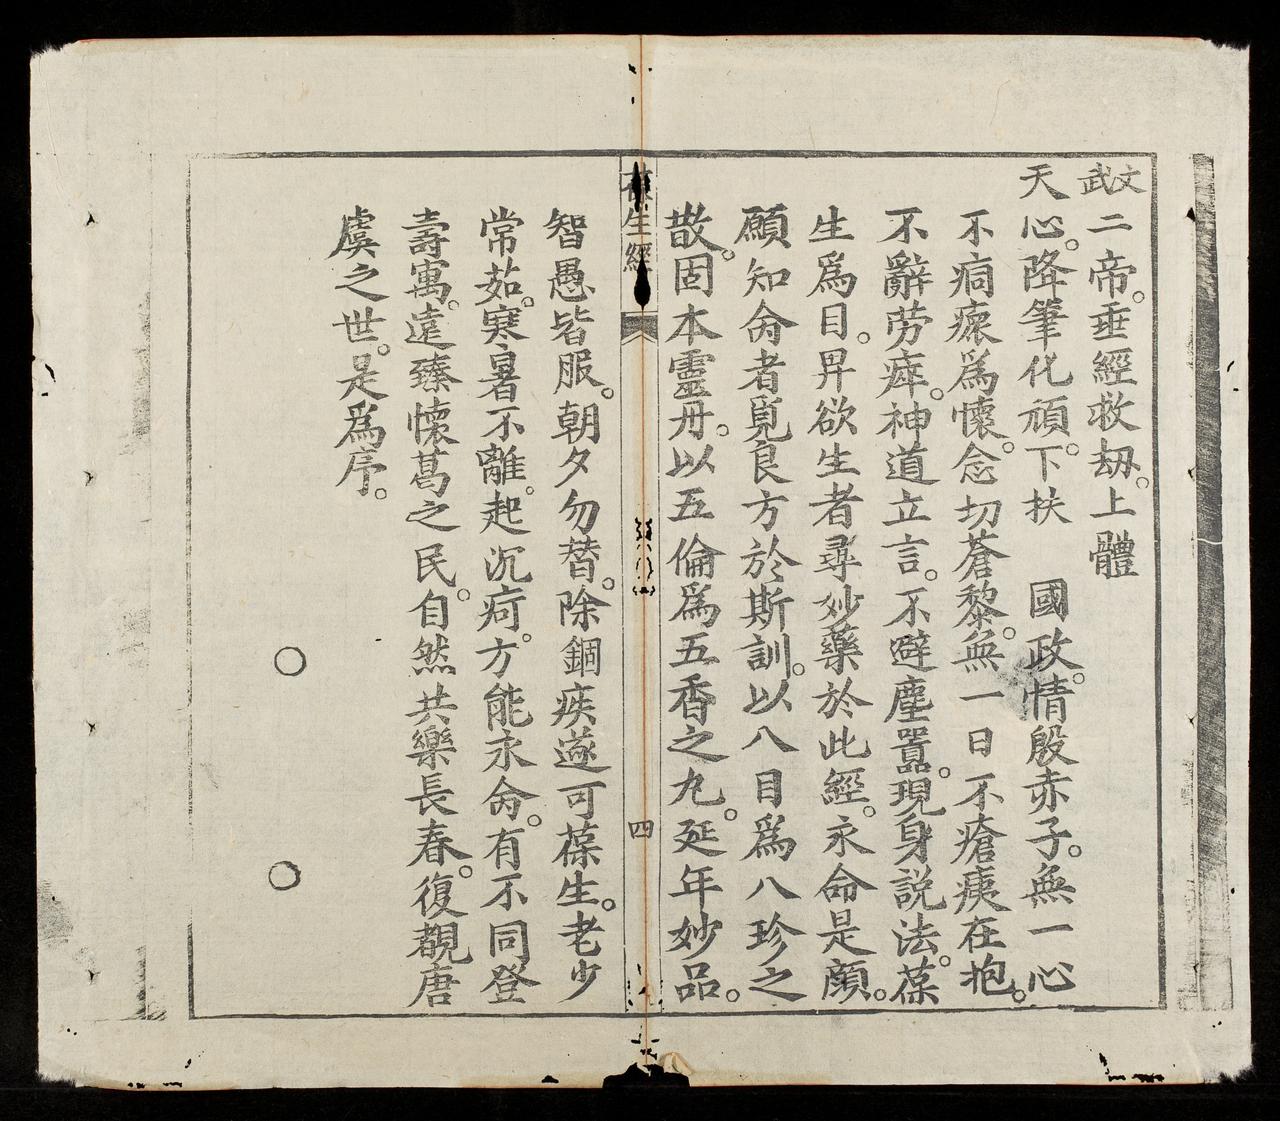 文武二帝。垂經救刼。上體
天心。降筆化頑。下扶　國政。情殷赤子。無一心
不痌瘝爲懷。念切蒼黎。無一日不瘡痍在抱。
不辭劳瘁。神道立言。不避塵囂。現身說法。葆
生爲目。畀欲生者尋妙藥於此經。永命是顔。
願知命者覓良方於斯訓。以八目爲八珍之
散。固本靈丹。以五倫爲五香之丸。延年妙品。
葆生經
四
智愚皆服。朝夕勿替。除錮疾遂可葆生。老少
常茹。寒暑不離。起沉疴。方能永命。有不同登
壽㝢。遠臻懷葛之民。自然共樂長春。復覩唐
虞之世。是爲序。